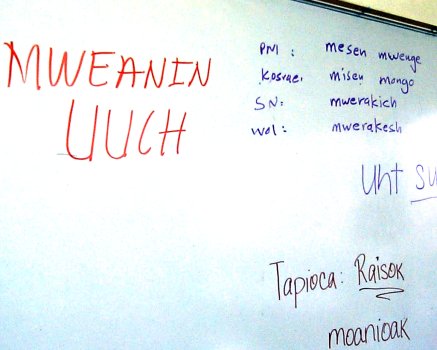 MWEANIN
UUCH
PNI: mesen mwenge
Kosrae: misen mongo
SN: mwerakich
Wol: mwerakesh
Uht su
Tapioca: Raisok
moanioak